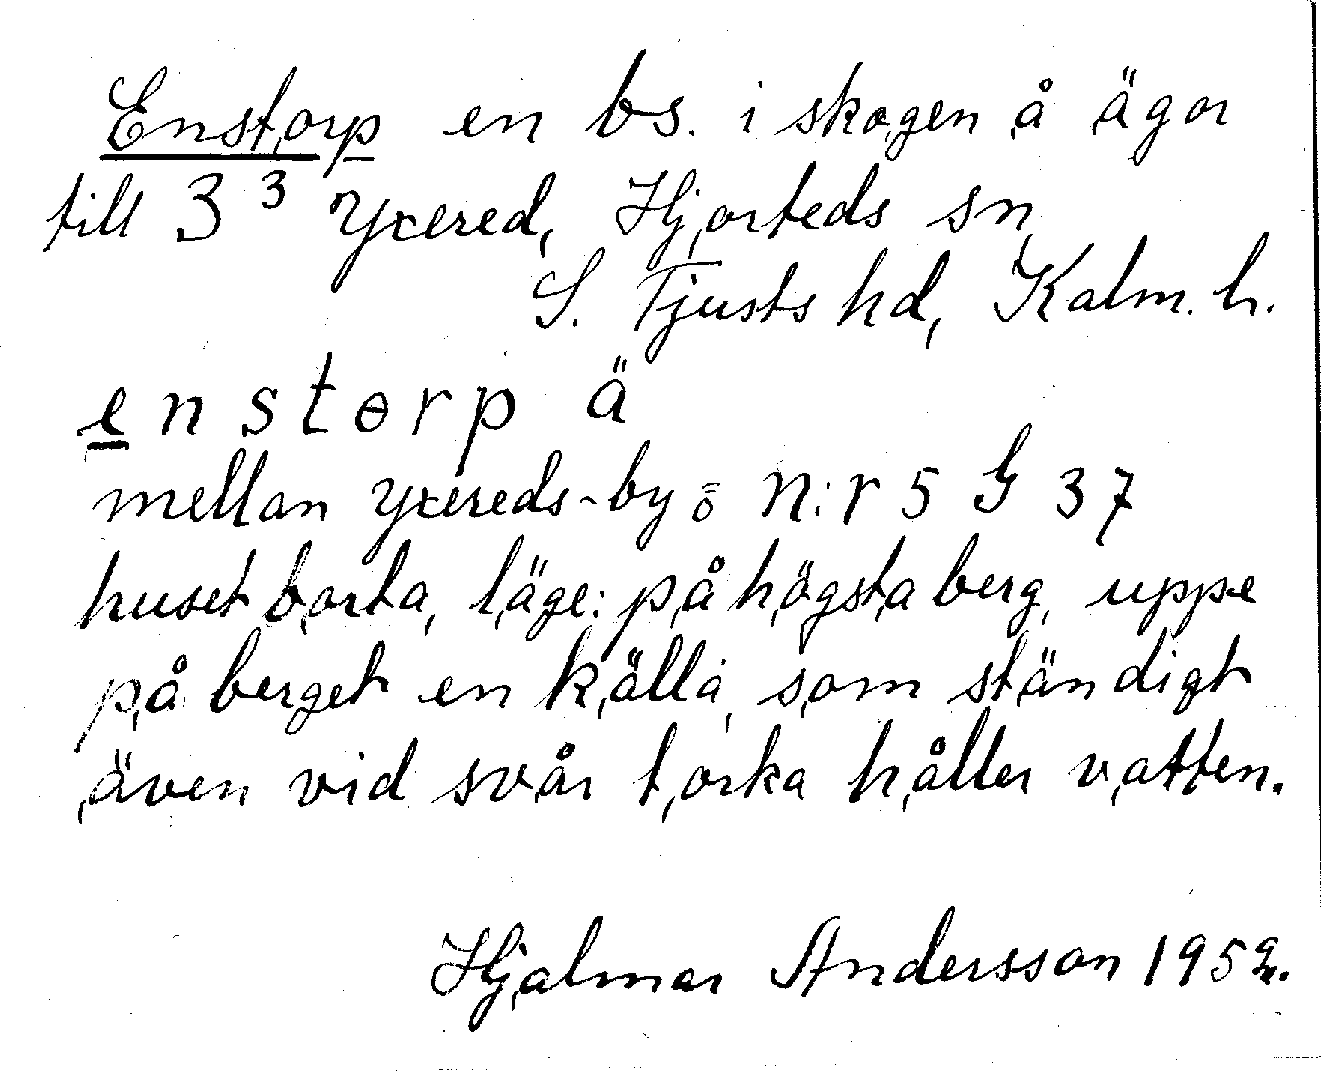 Enstorp en bs. i skogen å ägor
till 3³ Yxered, Hjorteds sn
S. Tjusts hd, Kalm. l.
enstɵrp ä
mellan yxereds-by o n:r 5 G 37
huset borta, läge: på högsta berg, uppe
på berget en källa, som ständigt
även vid svår torka håller vatten.
Hjalmar Andersson 1952.